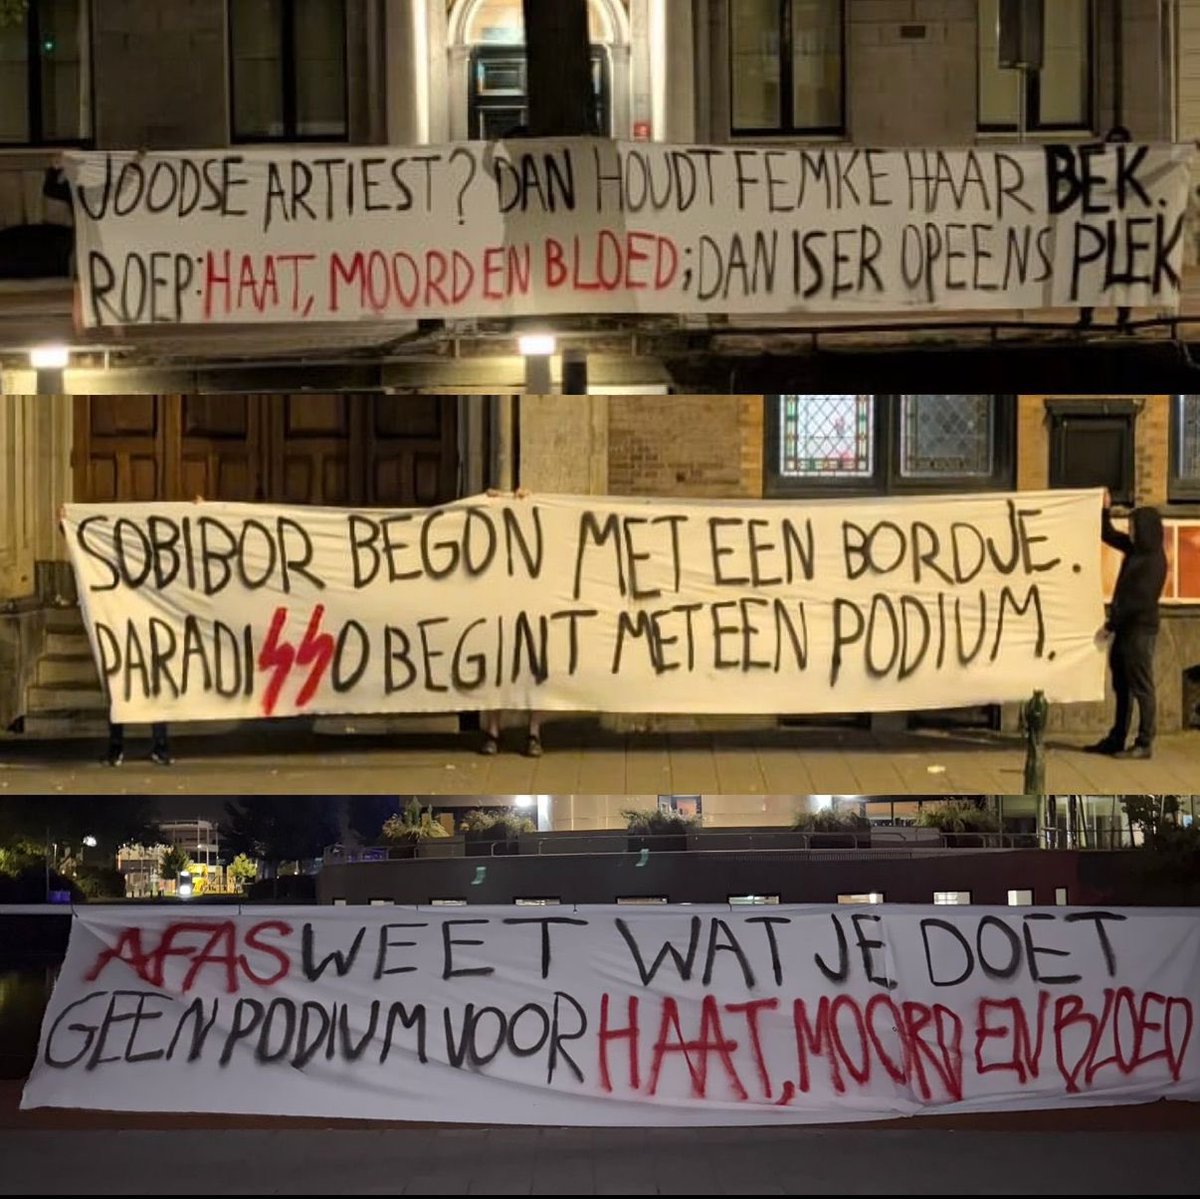 JOODSE ARTIEST? DAN HOUDT FEMKE HAAR BEK.
ROEP: HAAT, MOORD EN BLOED; DAN IS ER OPEENS PLEK
SOBIBOR BEGON MET EEN BORDJE.
PARADISSO BEGINT MET EEN PODIUM.
AFAS WEET WAT JE DOET
GEEN PODIUM VOOR HAAT, MOORD EN BLOED